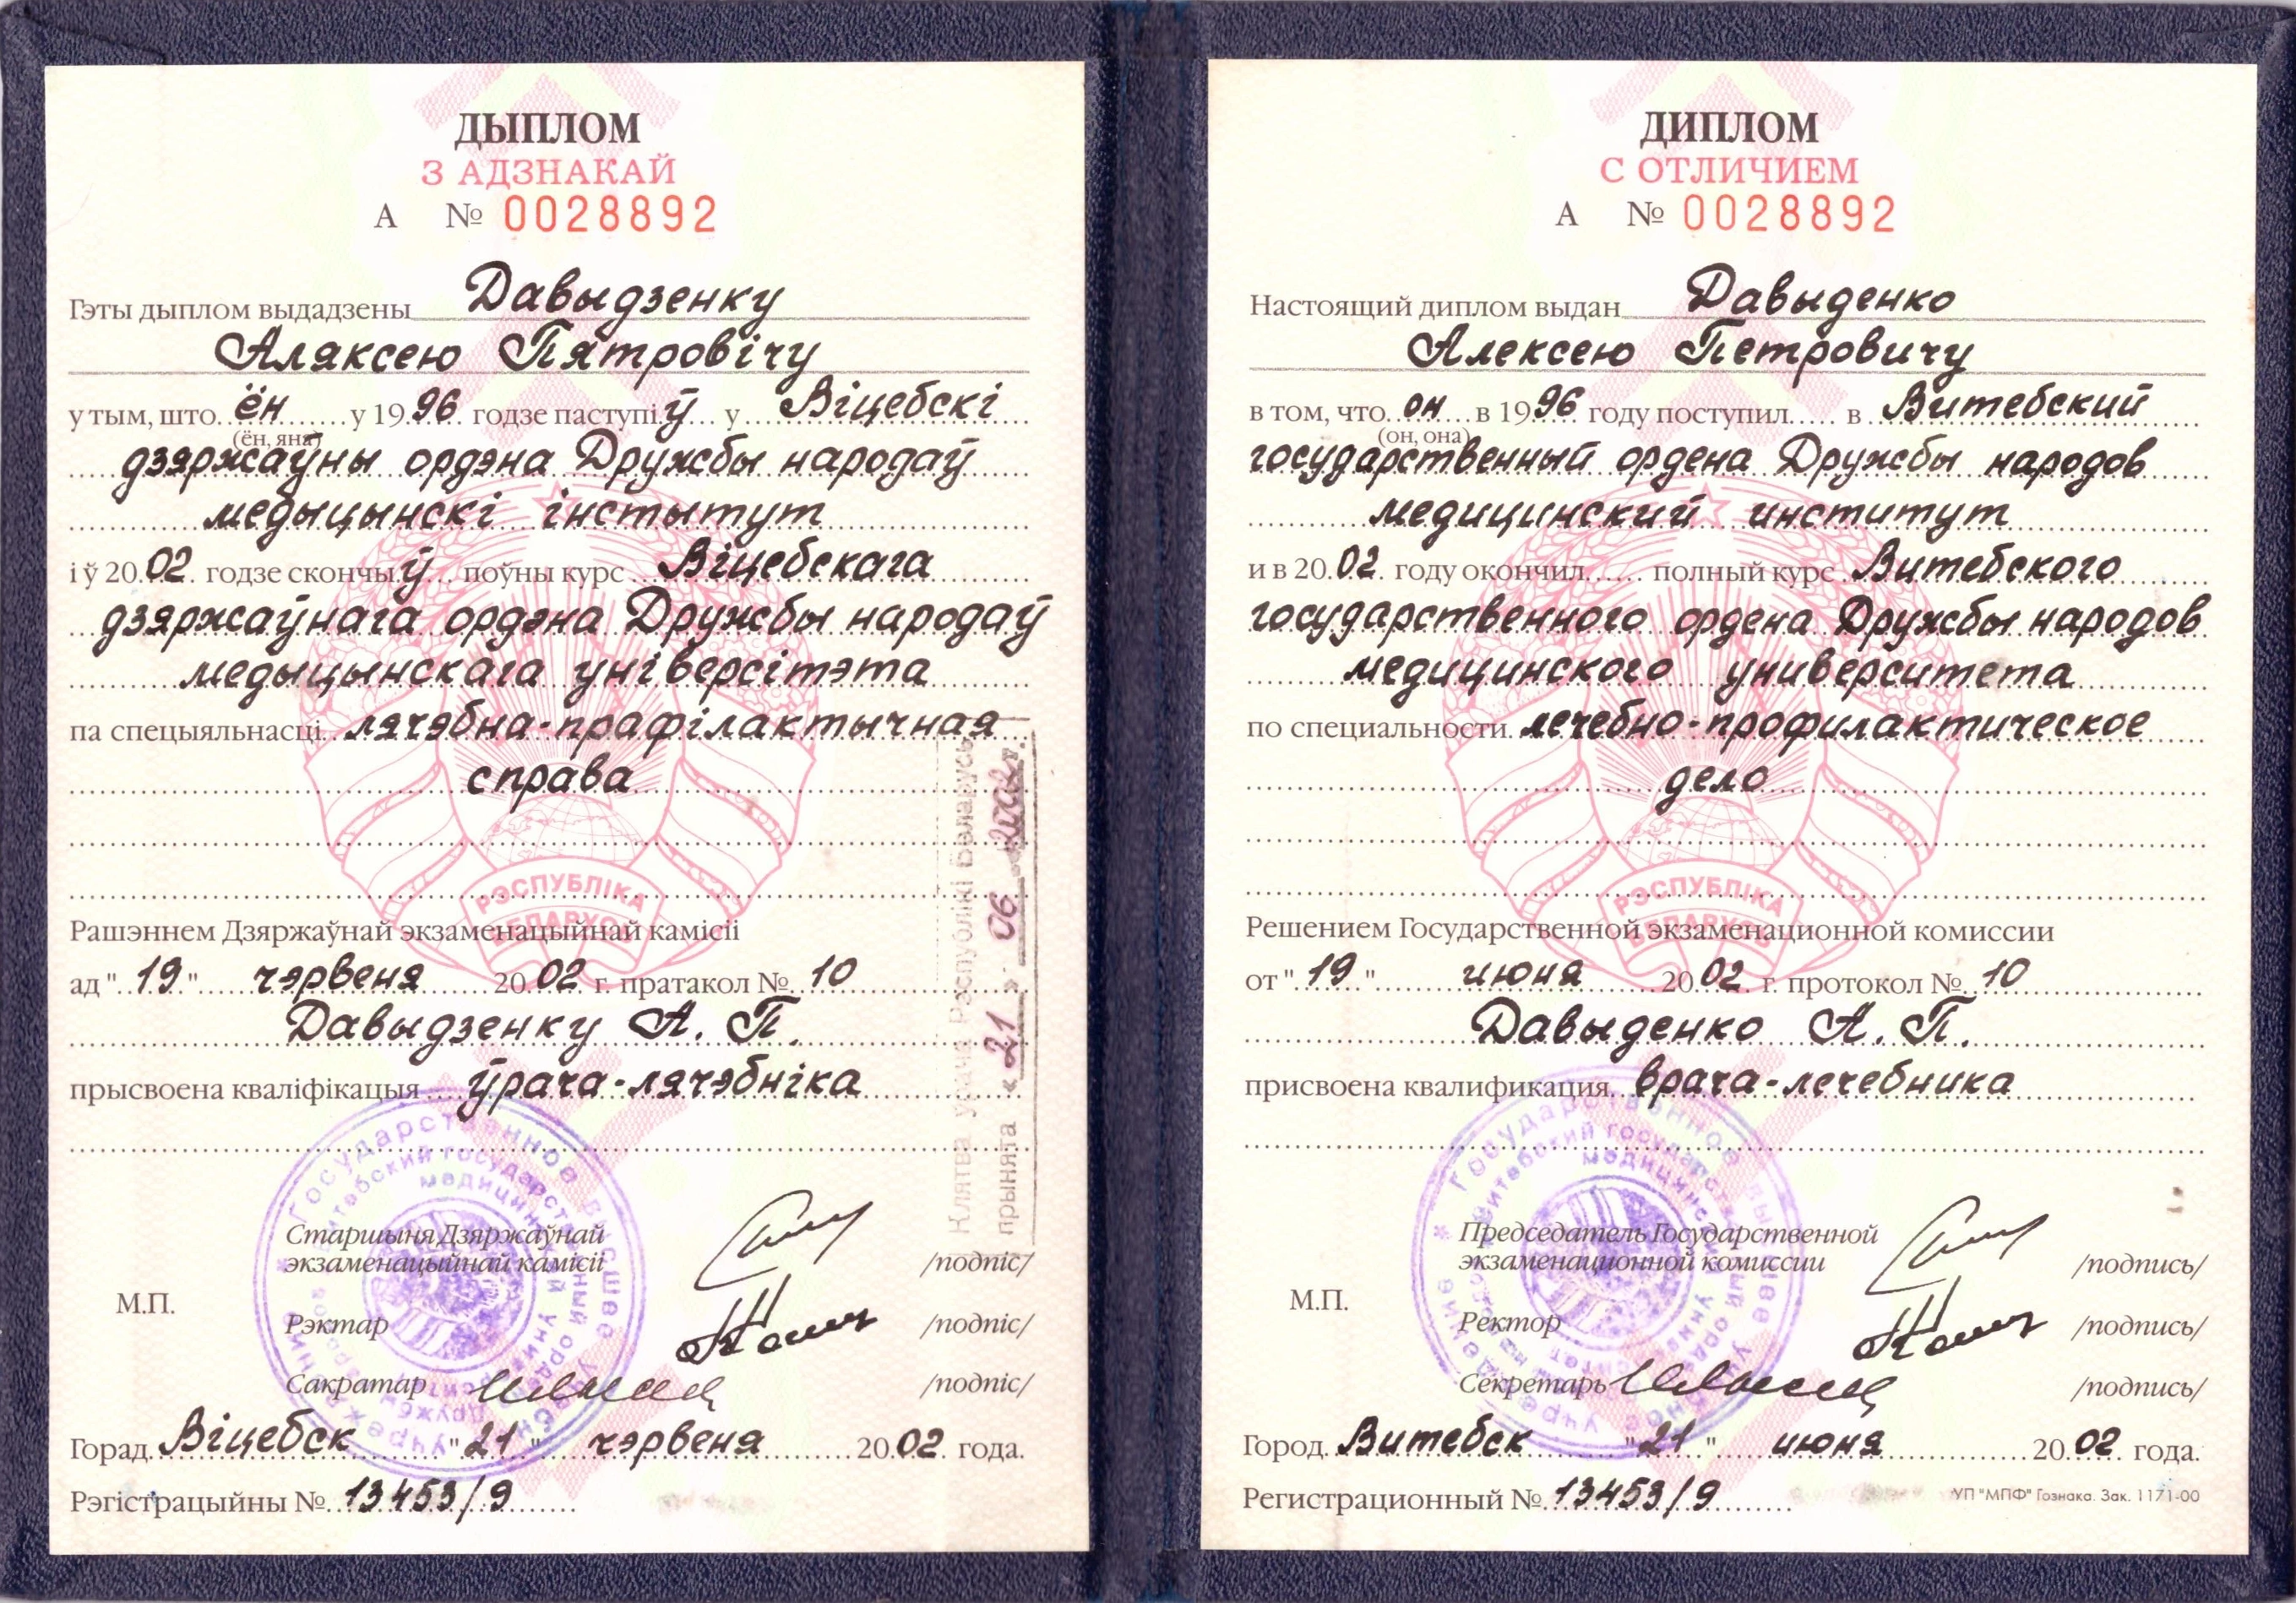 ДЫПЛОМ
З АДЗНАКАЙ
А № 0028892
Гэты дыплом выдадзены Давыдзенку
Аляксею Пятровічу
у тым, што ён у 1996 годзе паступіў у Віцебскі
(ён, яна)
дзяржаўны ордэна Дружбы народаў
медыцынскі інстытут
і ў 2002 годзе скончыў поўны курс Віцебскага
дзяржаўнага ордэна Дружбы народаў
медыцынскага універсітэта
па спецыяльнасці лячэбна-прафілактычная
справа
РЭСПУБЛІКА
БЕЛАРУСЬ
Рашэннем Дзяржаўнай экзаменацыйнай камісіі
ад "19" чэрвеня 2002 г. пратакол № 10
Давыдзенку А. П.
прысвоена кваліфікацыя ўрача-лячэбніка
Клятва урача Рэспублікі Беларусь
прынята «21» 06 2002 г.
Старшыня Дзяржаўнай
экзаменацыйнай камісіі /подпіс/
М.П.
Рэктар /подпіс/
Сакратар /подпіс/
Горад Віцебск "21" чэрвеня 2002 года.
Рэгістрацыйны № 13453/9
ДИПЛОМ
С ОТЛИЧИЕМ
А № 0028892
Настоящий диплом выдан Давыденко
Алексею Петровичу
в том, что он в 1996 году поступил в Витебский
(он, она)
государственный ордена Дружбы народов
медицинский институт
и в 2002 году окончил полный курс Витебского
государственного ордена Дружбы народов
медицинского университета
по специальности лечебно-профилактическое
дело
РЭСПУБЛІКА
БЕЛАРУСЬ
Решением Государственной экзаменационной комиссии
от "19" июня 2002 г. протокол № 10
Давыденко А. П.
присвоена квалификация врача-лечебника
Председатель Государственной
экзаменационной комиссии /подпись/
М.П.
Ректор /подпись/
Секретарь /подпись/
Город Витебск "21" июня 2002 года.
Регистрационный № 13453/9
УП "МПФ" Гознака. Зак. 1171-00